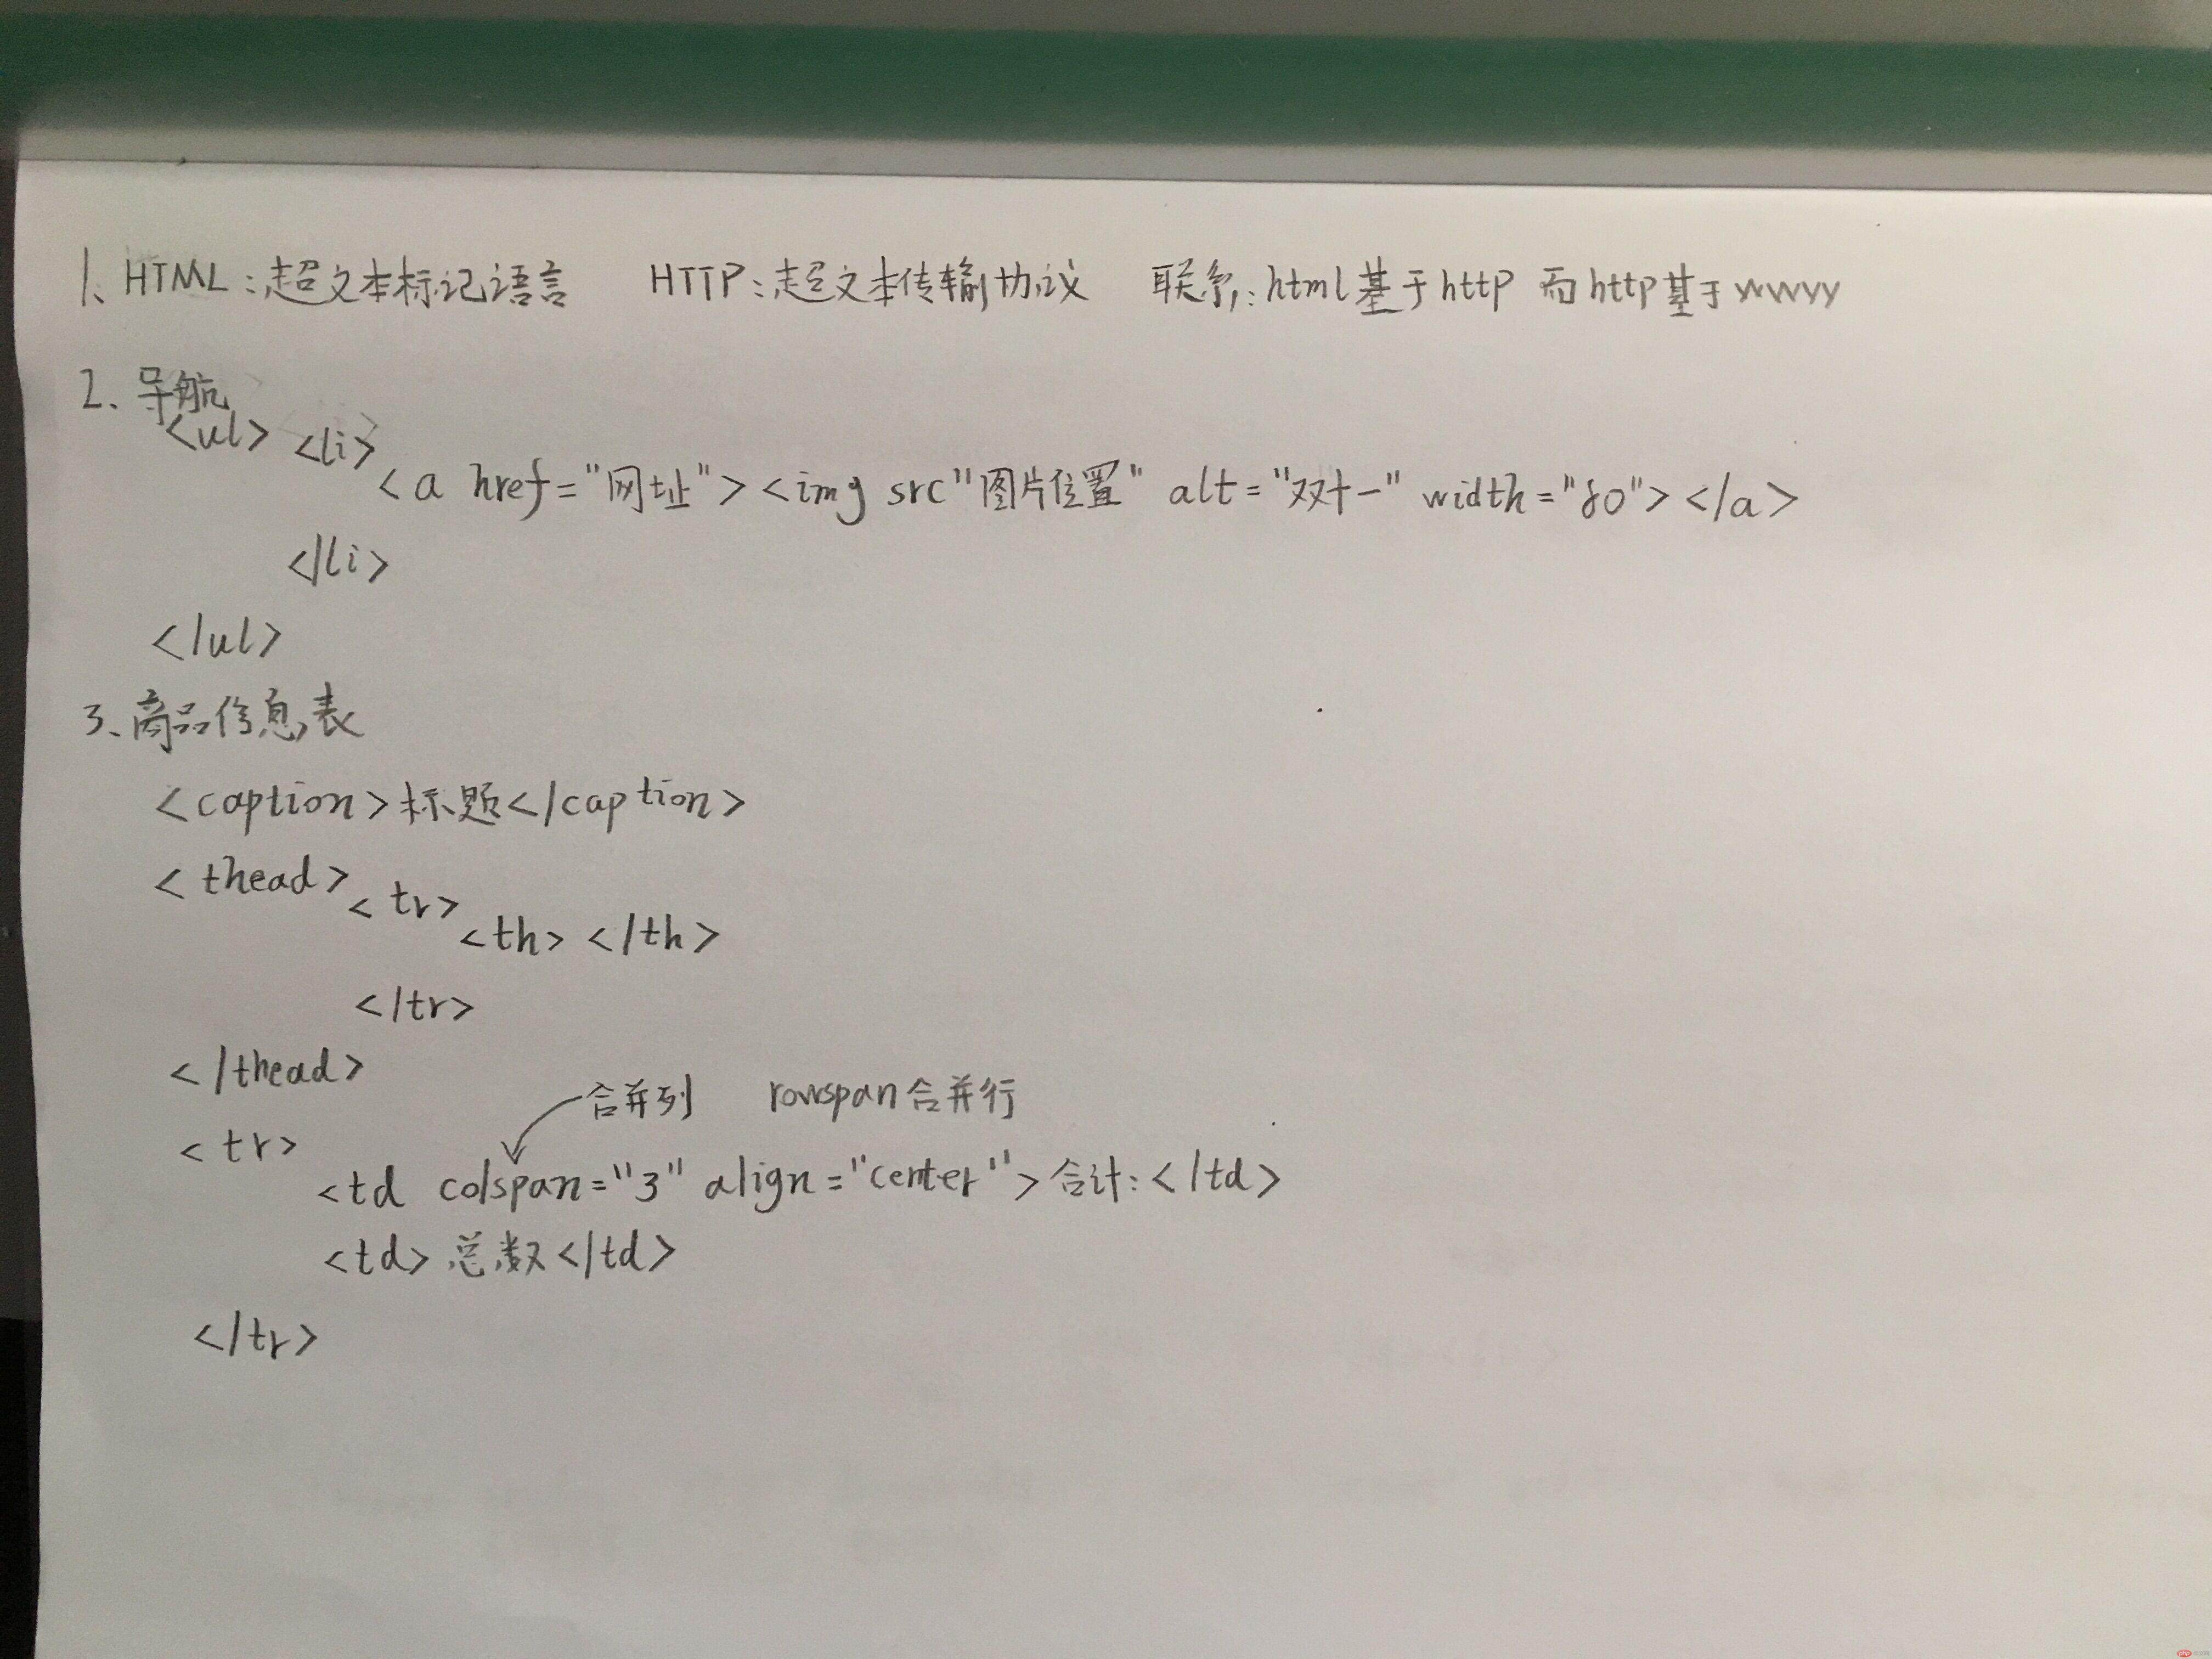 1、HTML:超文本标记语言 HTTP:超文本传输协议 联系:html基于http 而http基于
2、导航
<ul> <li>
<a href="网址"><img src"图片位置" alt="双十一" width="80"></a>
</li>
</ul>
3、商品信息表
<caption>标题</caption>
<thead>
<tr>
<th> </th>
</tr>
</thead>
合并列 rowspan合并行
<tr>
<td colspan="3" align="center">合计:</td>
<td>总数</td>
</tr>
php